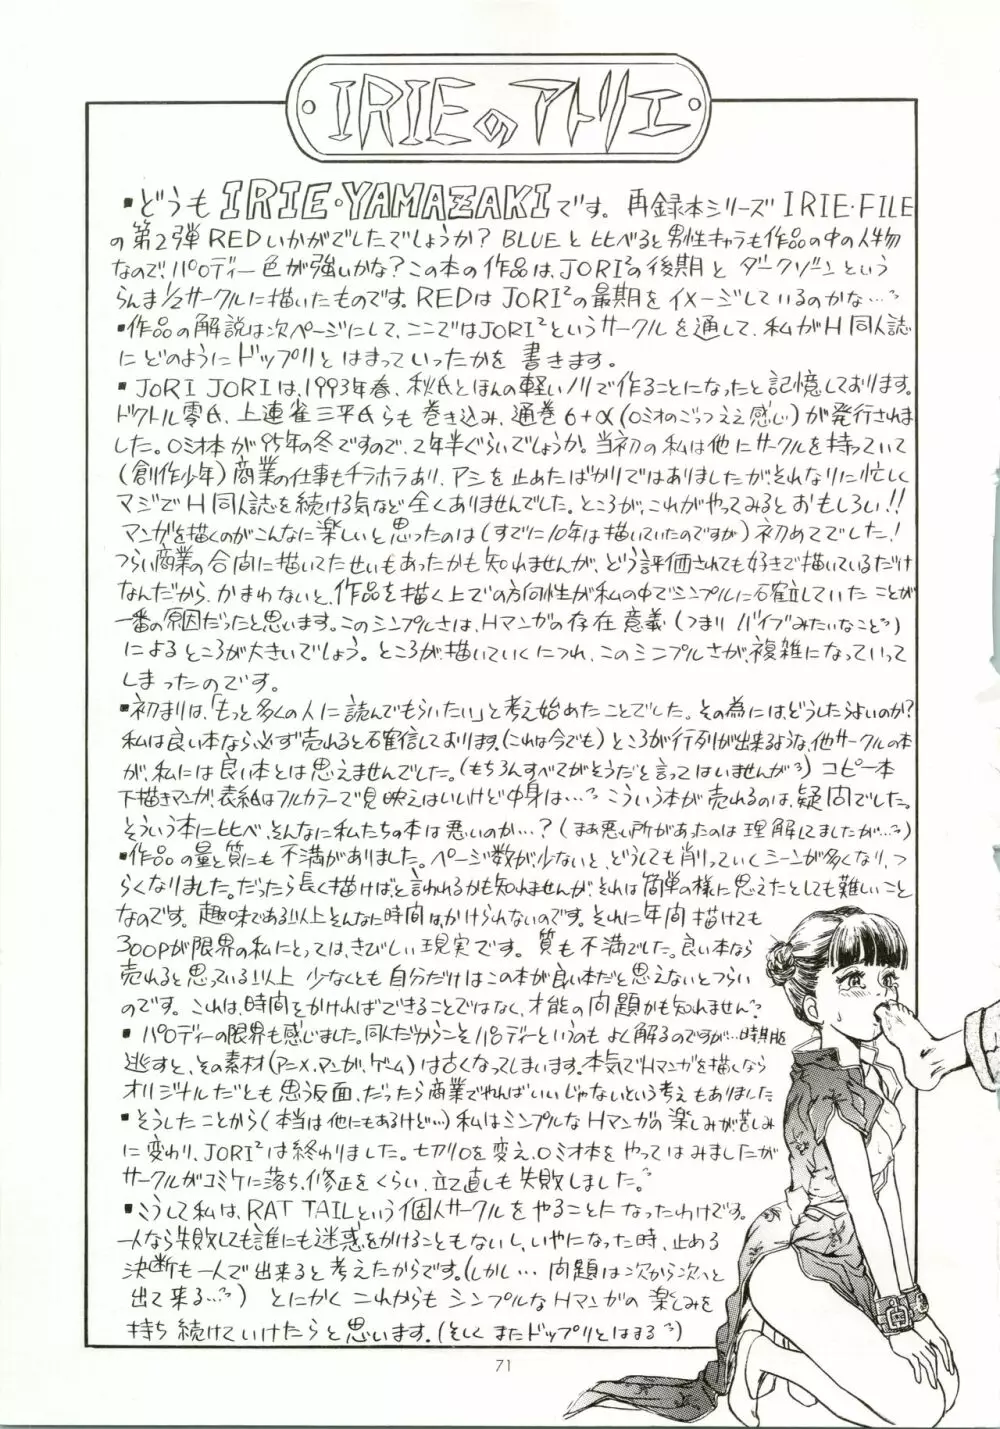 IRIEのアトリエ
▪どうも IRIE・YAMAZAKIです。再録本シリーズ IRIE・FILE
の第2弾 REDいかがでしたでしょうか? BLUEと比べると男性キャラも作品の中の人物
なので、パロディー色が強いかな?この本の作品は、JORI²の後期と ダークゾーンという
らんま½サークルに描いたものです。REDはJORI²の最期をイメージしているのかな…
▪作品の解説は次ページにして、ここではJORI²というサークルを通して、私がH同人誌
にどのようにドップリとはまっていったかを書きます。
▪JORI JORIは、1993年春、秋氏とほんの軽いノリで作ることになったと記憶しております。
ドクトル零氏、上連雀三平氏らも巻き込み、通巻6+α(ロミオのごっつええ感じ)が発行されま
した。ロミオ本が95年の冬ですので、2年半ぐらいでしょうか。当初の私は他にサークルを持っていて
(創作少年)商業の仕事もチラホラあり、アシを止めたばかりではありましたが、それなりに忙しく
マジでH同人誌を続ける気など全くありませんでした。ところが、これがやってみるとおもしろい!!
マンガを描くのがこんなに楽しいと思ったのは(すでに10年は描いていたのですが)初めてでした!
つらい商業の合間に描いてたせいもあったかも知れませんが、どう評価されても好きで描いているだけ
なんだから、かまわないと、作品を描く上での方向性が私の中でシンプルに確立していたことが
一番の原因だったと思います。このシンプルさは、Hマンガの存在意義(つまりバイブみたいなこと)
によるところが大きいでしょう。ところが、描いていくにつれ、このシンプルさが、複雑になっていって
しまったのです。
▪初まりは、「もっと多くの人に読んでもらいたい」と考え始めたことでした。その為には、どうしたらよいのか?
私は良い本なら必ず売れると確信しております。(これは今でも)ところが行列が出来るような、他サークルの本
が、私には良い本とは思えませんでした。(もちろんすべてがそうだと言ってはいませんが)コピー本
下描きマンガ、表紙はフルカラーで見映えはいいけど中身は…こういう本が売れるのは、疑問でした。
そういう本に比べ、そんなに私たちの本は悪いのか…?(まあ悪い所があったのは理解してましたが…)
▪作品の量と質にも不満がありました。ページ数が、少ないと、どうしても削りっていくシーンが多くなり、つ
らくなりました。だったら長く描けば、と言われるかも知れませんが、それは簡単の様に思えたとしても難しいこと
なのです。趣味である以上そんなに時間は、かけられないのです。それに年間描けても
300Pが限界の私にとっては、きびしい現実です。質も不満でした。良い本なら
売れると思っている以上 少なくとも自分だけはこの本が良い本だと思えないとつらい
のです。これは、時間をかければできることではなく、才能の問題かも知れません?
▪パロディーの限界も感じました。同人だからこそパロディーというのもよく解るのですが…時期
逃すと、その素材(アニメ、マンガ、ゲーム)は古くなってしまいます。本気でHマンガを描くなら
オリジナルだとも思う反面、だったら商業でやればいいじゃないという考えもありました
▪そうしたことから(本当は他にもあるけど…)私はシンプルなHマンガの楽しみが苦しみ
に変わり、JORI²は終わりました。七切り0を変え、ロミオ本をやってはみましたが
サークルがコミケに落ち、修正をくらい、立て直しも失敗しました。
▪こうして私は、RAT TAILという個人サークルをやることになったわけです。
一人なら失敗しても誰にも迷惑をかけることもないし、いやになった時、止める
決断も一人で出来ると考えたからです。(しかし…問題は次から次へと
出て来る…)とにかくこれからもシンプルなHマンガの楽しみを
持ち続けていけたらと思います。(そしてまたドップリとはまる)
71